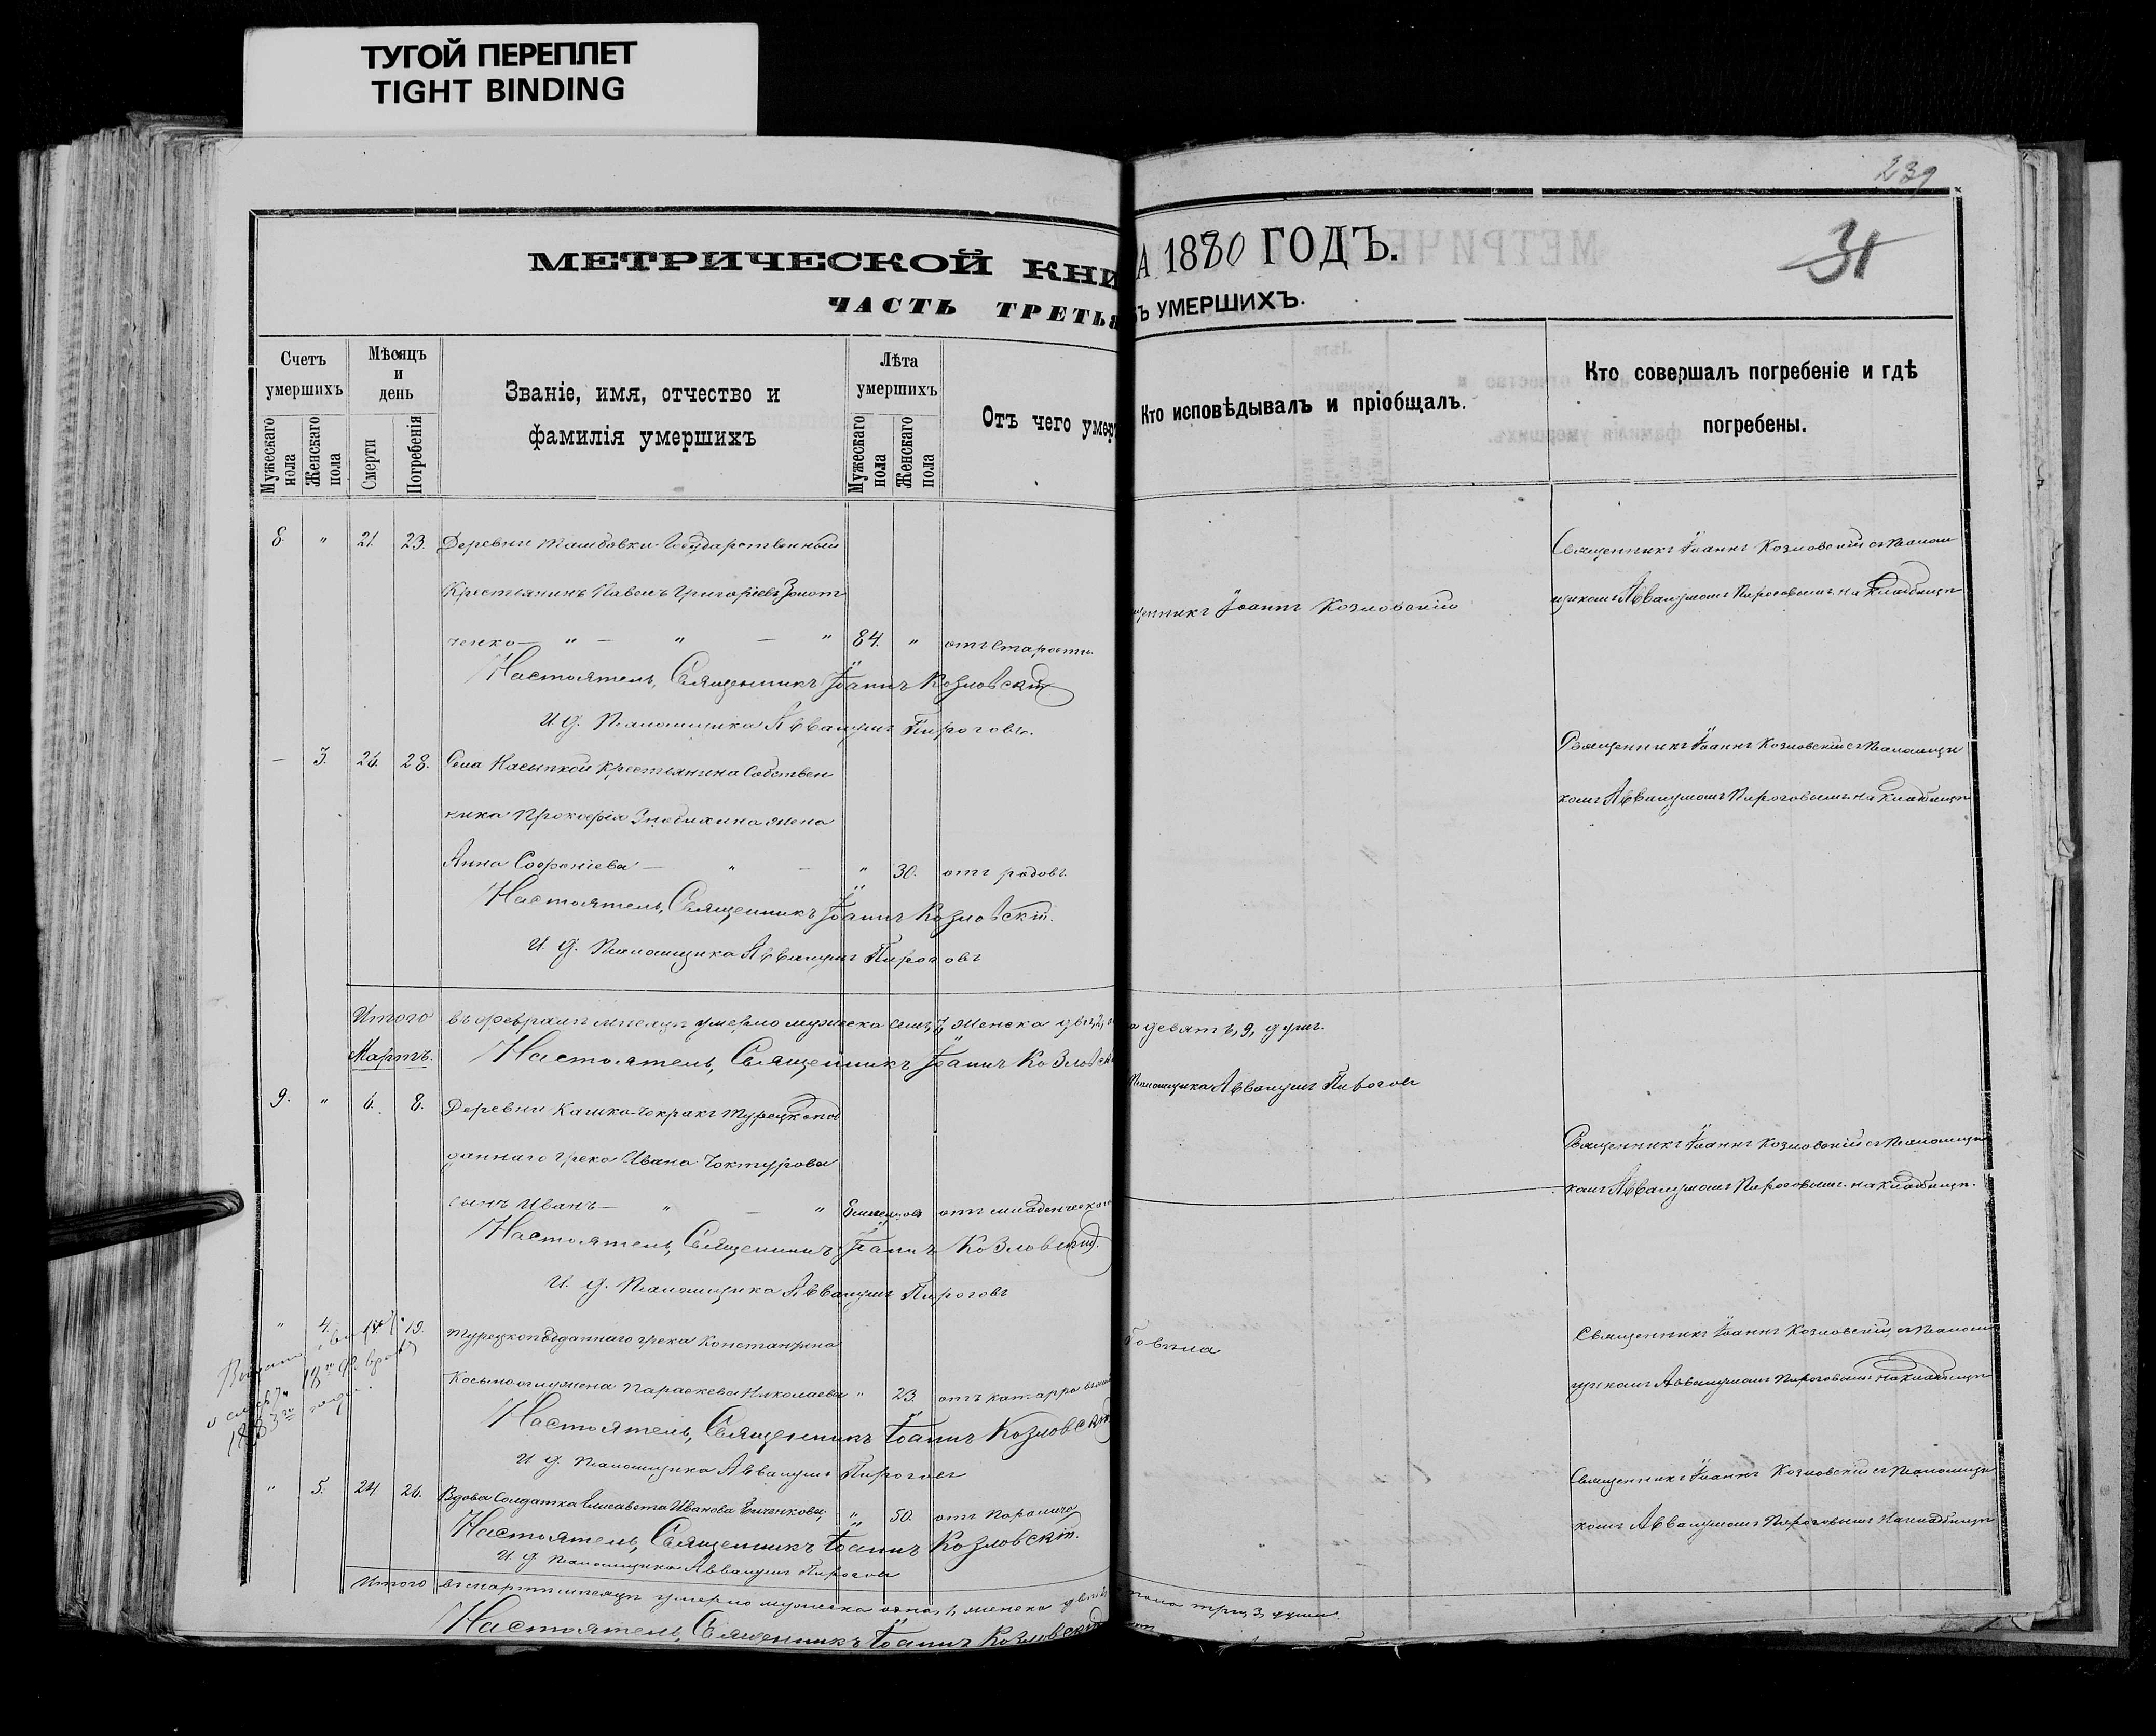 ТУГОЙ ПЕРЕПЛЕТ
TIGHT BINDING
239
31
МЕТРИЧЕСКОЙ КНИ А 1880 ГОДЪ.
ЧАСТЬ ТРЕТЬЯ Ъ УМЕРШИХЪ.
Счетъ умершихъ
Мужескаго пола
Женскаго пола
Мѣсяцъ и день
Смерти
Погребенія
Званіе, имя, отчество и фамилія умершихъ
Лѣта умершихъ
Мужескаго пола
Женскаго пола
Отъ чего умер
Кто исповѣдывалъ и пріобщалъ.
Кто совершалъ погребеніе и гдѣ погребены.
8 " 21. 23. Деревни Тамбовки Государственный
Крестьянинъ Павелъ Григоріевъ Золот
ченко — " — " — " 84. " отъ старости.
Іоаннъ Козловскій
Священникъ Іоаннъ Козловскій съ Псалом
щикомъ Аввакумомъ Пироговымъ на кладбищѣ
Настоятель, Священникъ Іоаннъ Козловскій
И. д. Псаломщика Аввакумъ Пироговъ.
— 3. 26. 28. Села Насыпкой Крестьянина Собствен
ника Прокофія Знобихина жена
Анна Софроніева — " — " 30. отъ родовъ.
Священникъ Іоаннъ Козловскій съ Псаломщи
комъ Аввакумомъ Пироговымъ на кладбищѣ
Настоятель, Священникъ Іоаннъ Козловскій.
И. д. Псаломщика Аввакумъ Пироговъ
Итого въ февралѣ мѣсяцѣ умерло мужеска семь, 7, женска двѣ, 2, а девять, 9, душъ.
Мартъ. Настоятель, Священникъ Іоаннъ Козловск
Псаломщика Аввакумъ Пироговъ
9. " 6. 8. Деревни Кашка-Чокракъ Турецкопод
даннаго Грека Ивана Чоктурова
сынъ Иванъ — " — " отъ младенческаго
Священникъ Іоаннъ Козловскій съ Псаломщи
комъ Аввакумомъ Пироговымъ на кладбищѣ.
Настоятель, Священникъ Іоаннъ Козловскій.
И. д. Псаломщика Аввакумъ Пироговъ
" 4. 19. Турецкоподданнаго грека Константина
жена Параскева Николаева " 23. отъ катарра
Священникъ Іоаннъ Козловскій съ Псалом
щикомъ Аввакумомъ Пироговымъ на кладбищѣ
18 февраля
1883 года.
Настоятель, Священникъ Іоаннъ Козловскій
И. д. Псаломщика Аввакумъ Пироговъ
" 5. 24 26. Вдова Солдатка Елисавета Иванова " 50. отъ паралича
Священникъ Іоаннъ Козловскій съ Псаломщи
комъ Аввакумомъ Пироговымъ на кладбищѣ
Настоятель, Священникъ Іоаннъ Козловскій.
И. д. Псаломщика Аввакумъ Пироговъ
Итого въ мартѣ мѣсяцѣ умерло мужеска одна, 1, женска двѣ три, 3, души.
Настоятель, Священникъ Іоаннъ Козловскій